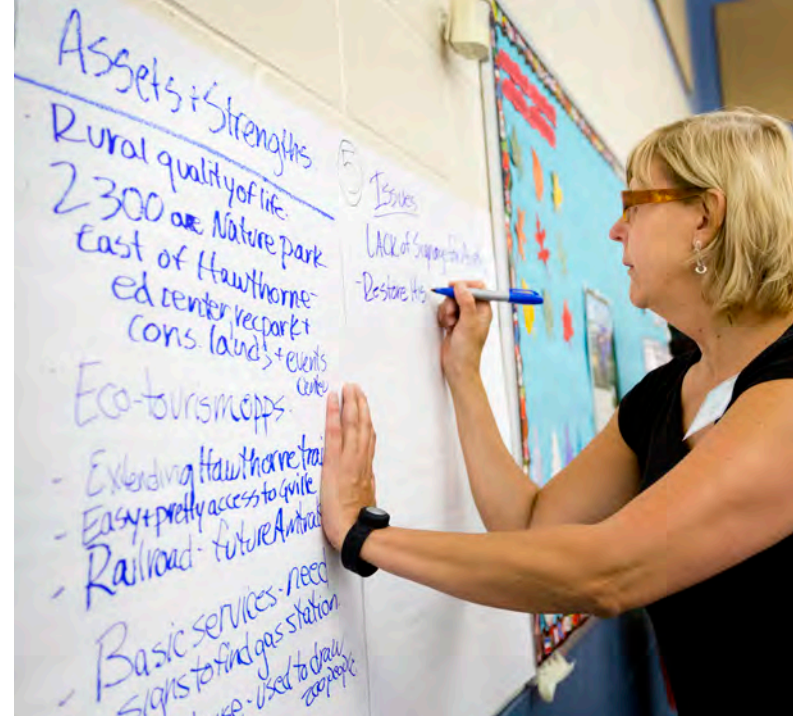 Assets + Strengths
Rural quality of life.
2300 ac Nature park
East of Hawthorne-
ed center, rec park +
cons. lands + events
center
Eco-tourism opps.
- Extending Hawthorne trail
- Easy + pretty access to Gville
- Railroad - future Amtrak
- Basic services - need
signs to find gas station
- used to draw
200 people
5
Issues
LACK of for
- Restore His